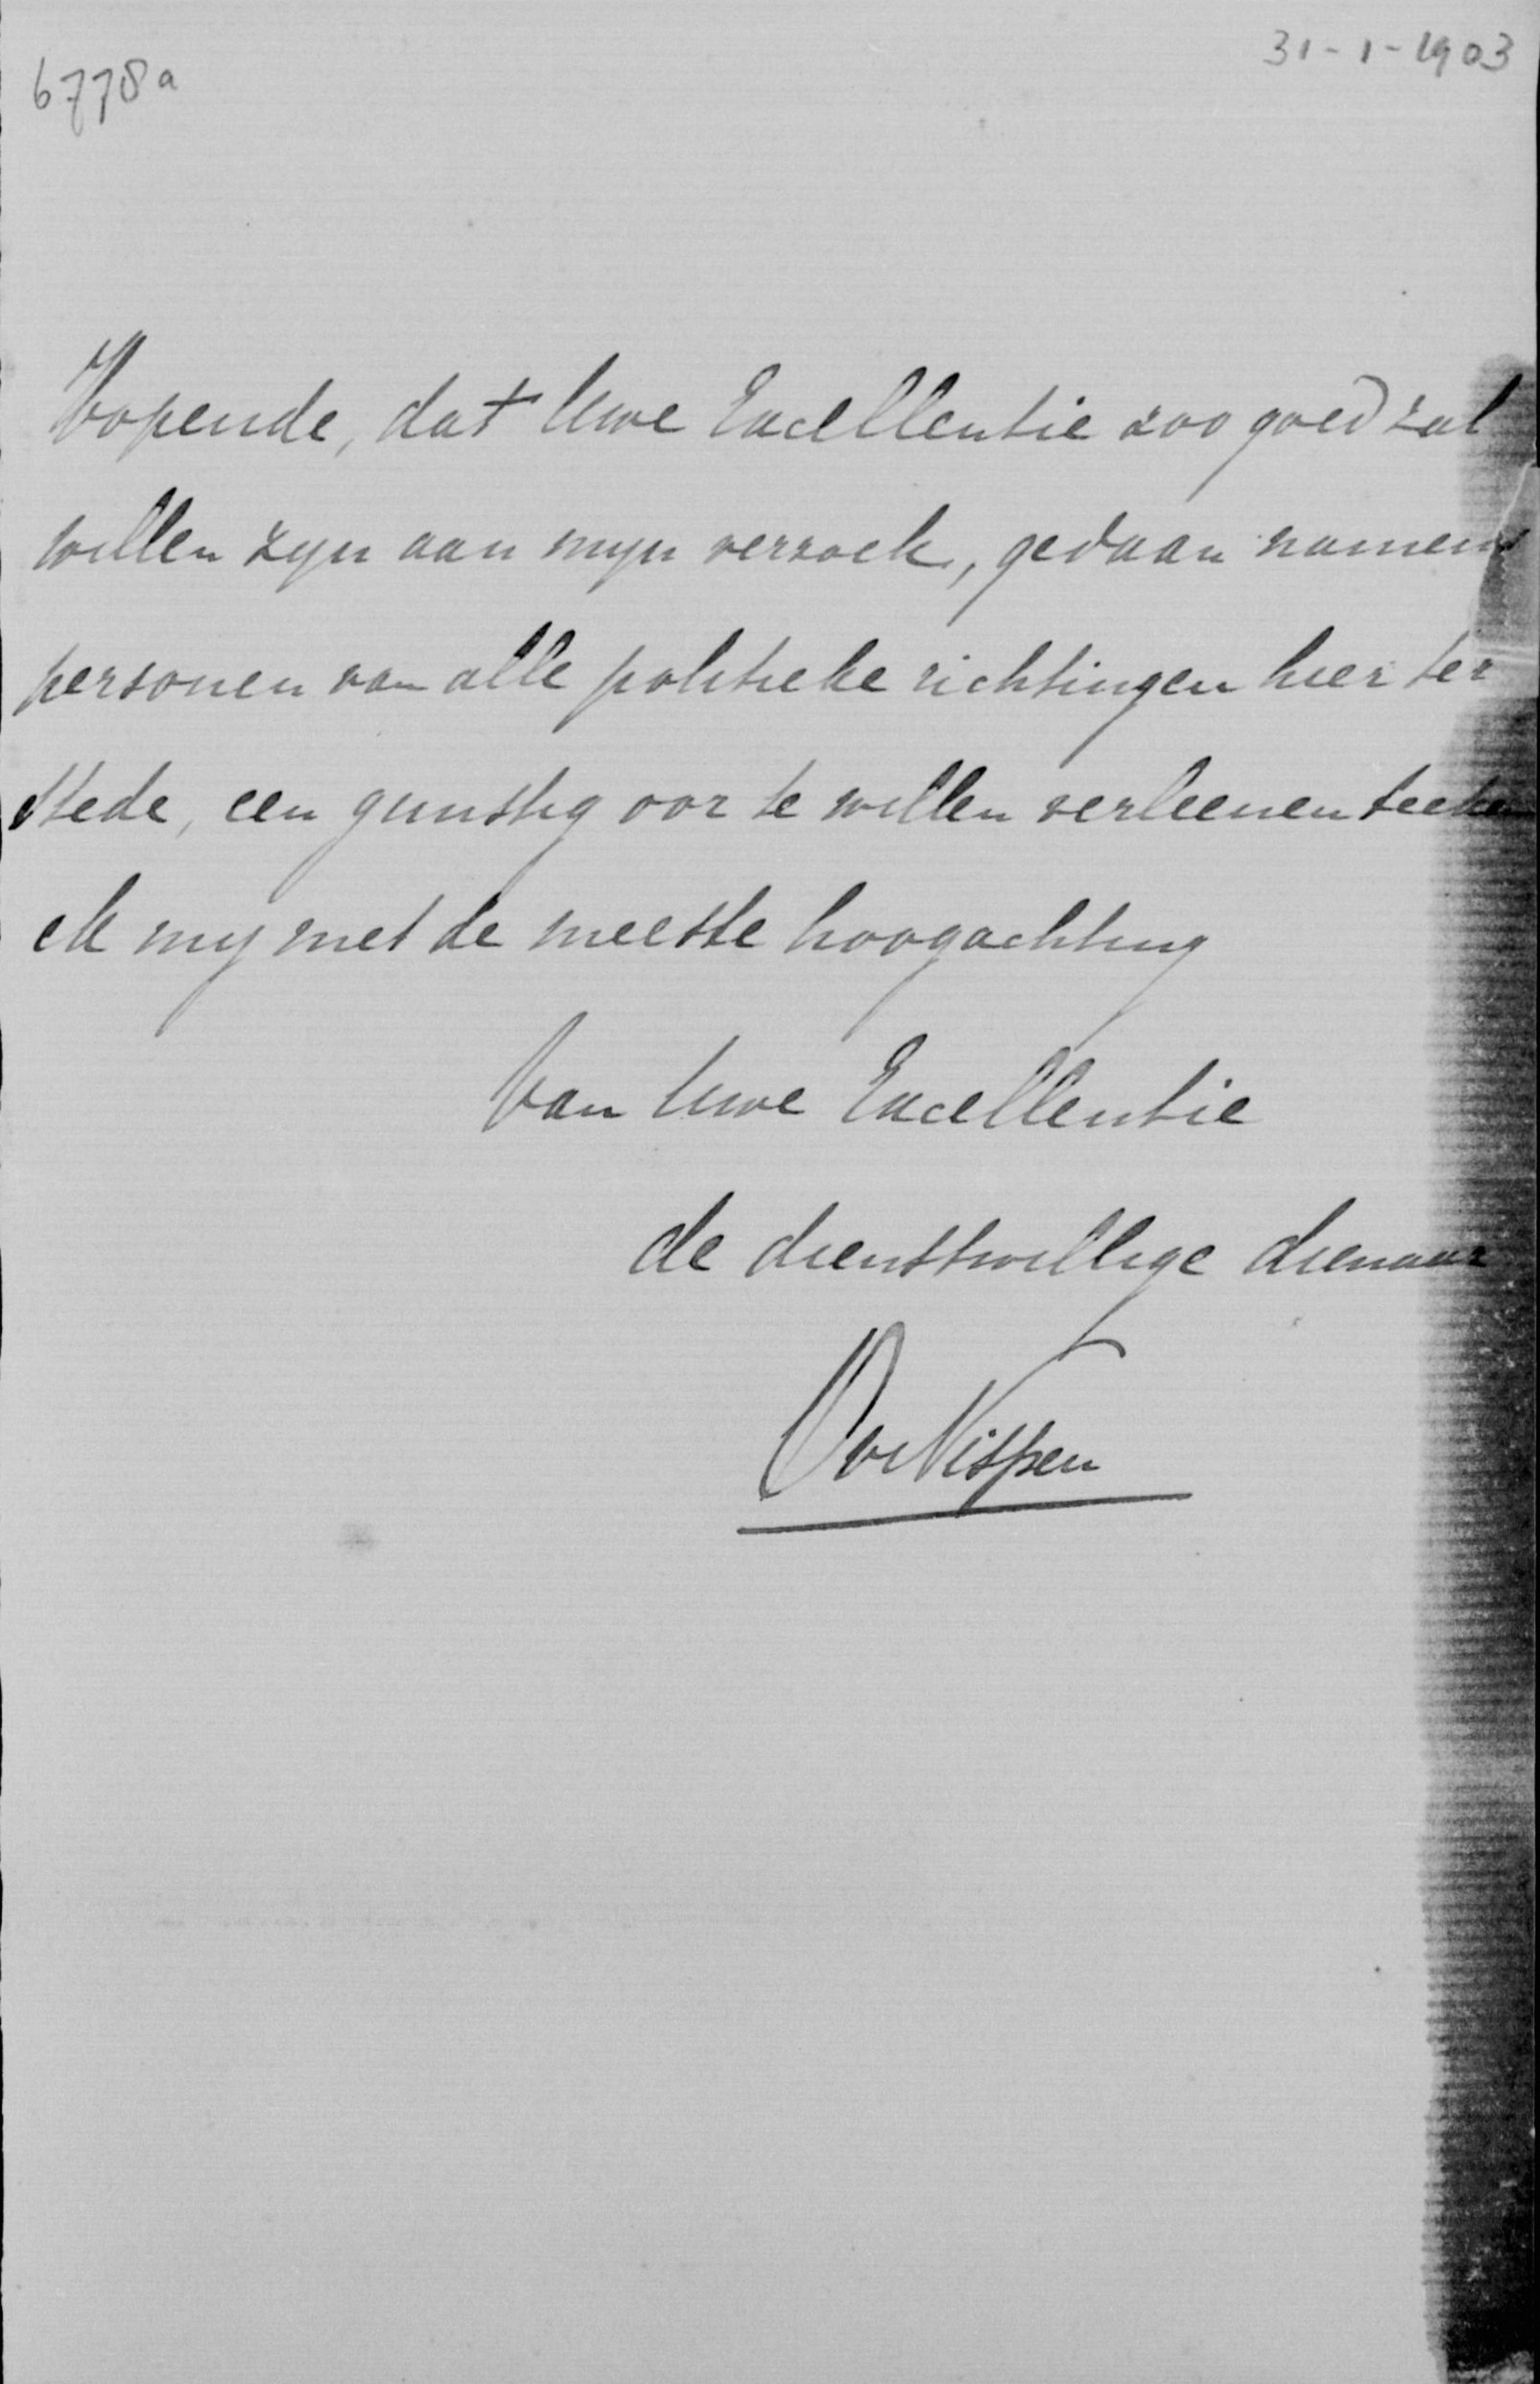 6778a
31-1-1903
Hopende, dat Uwe Excellentie zoo goed zal
willen zyn aan myn verzoek, gedaan namens
personen van alle politieke richtingen hier ter
stede, een gunstig oor te willen verleenen teeken
ik my met de meeste hoogachting
Van Uwe Excellentie
de dienstwillige dienaar
OvNispen